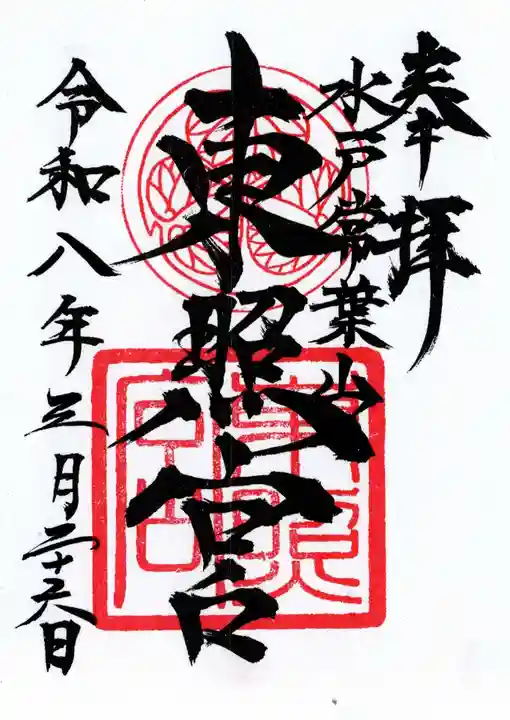 奉拝
水戸常葉山
東照宮
令和八年三月二十六日